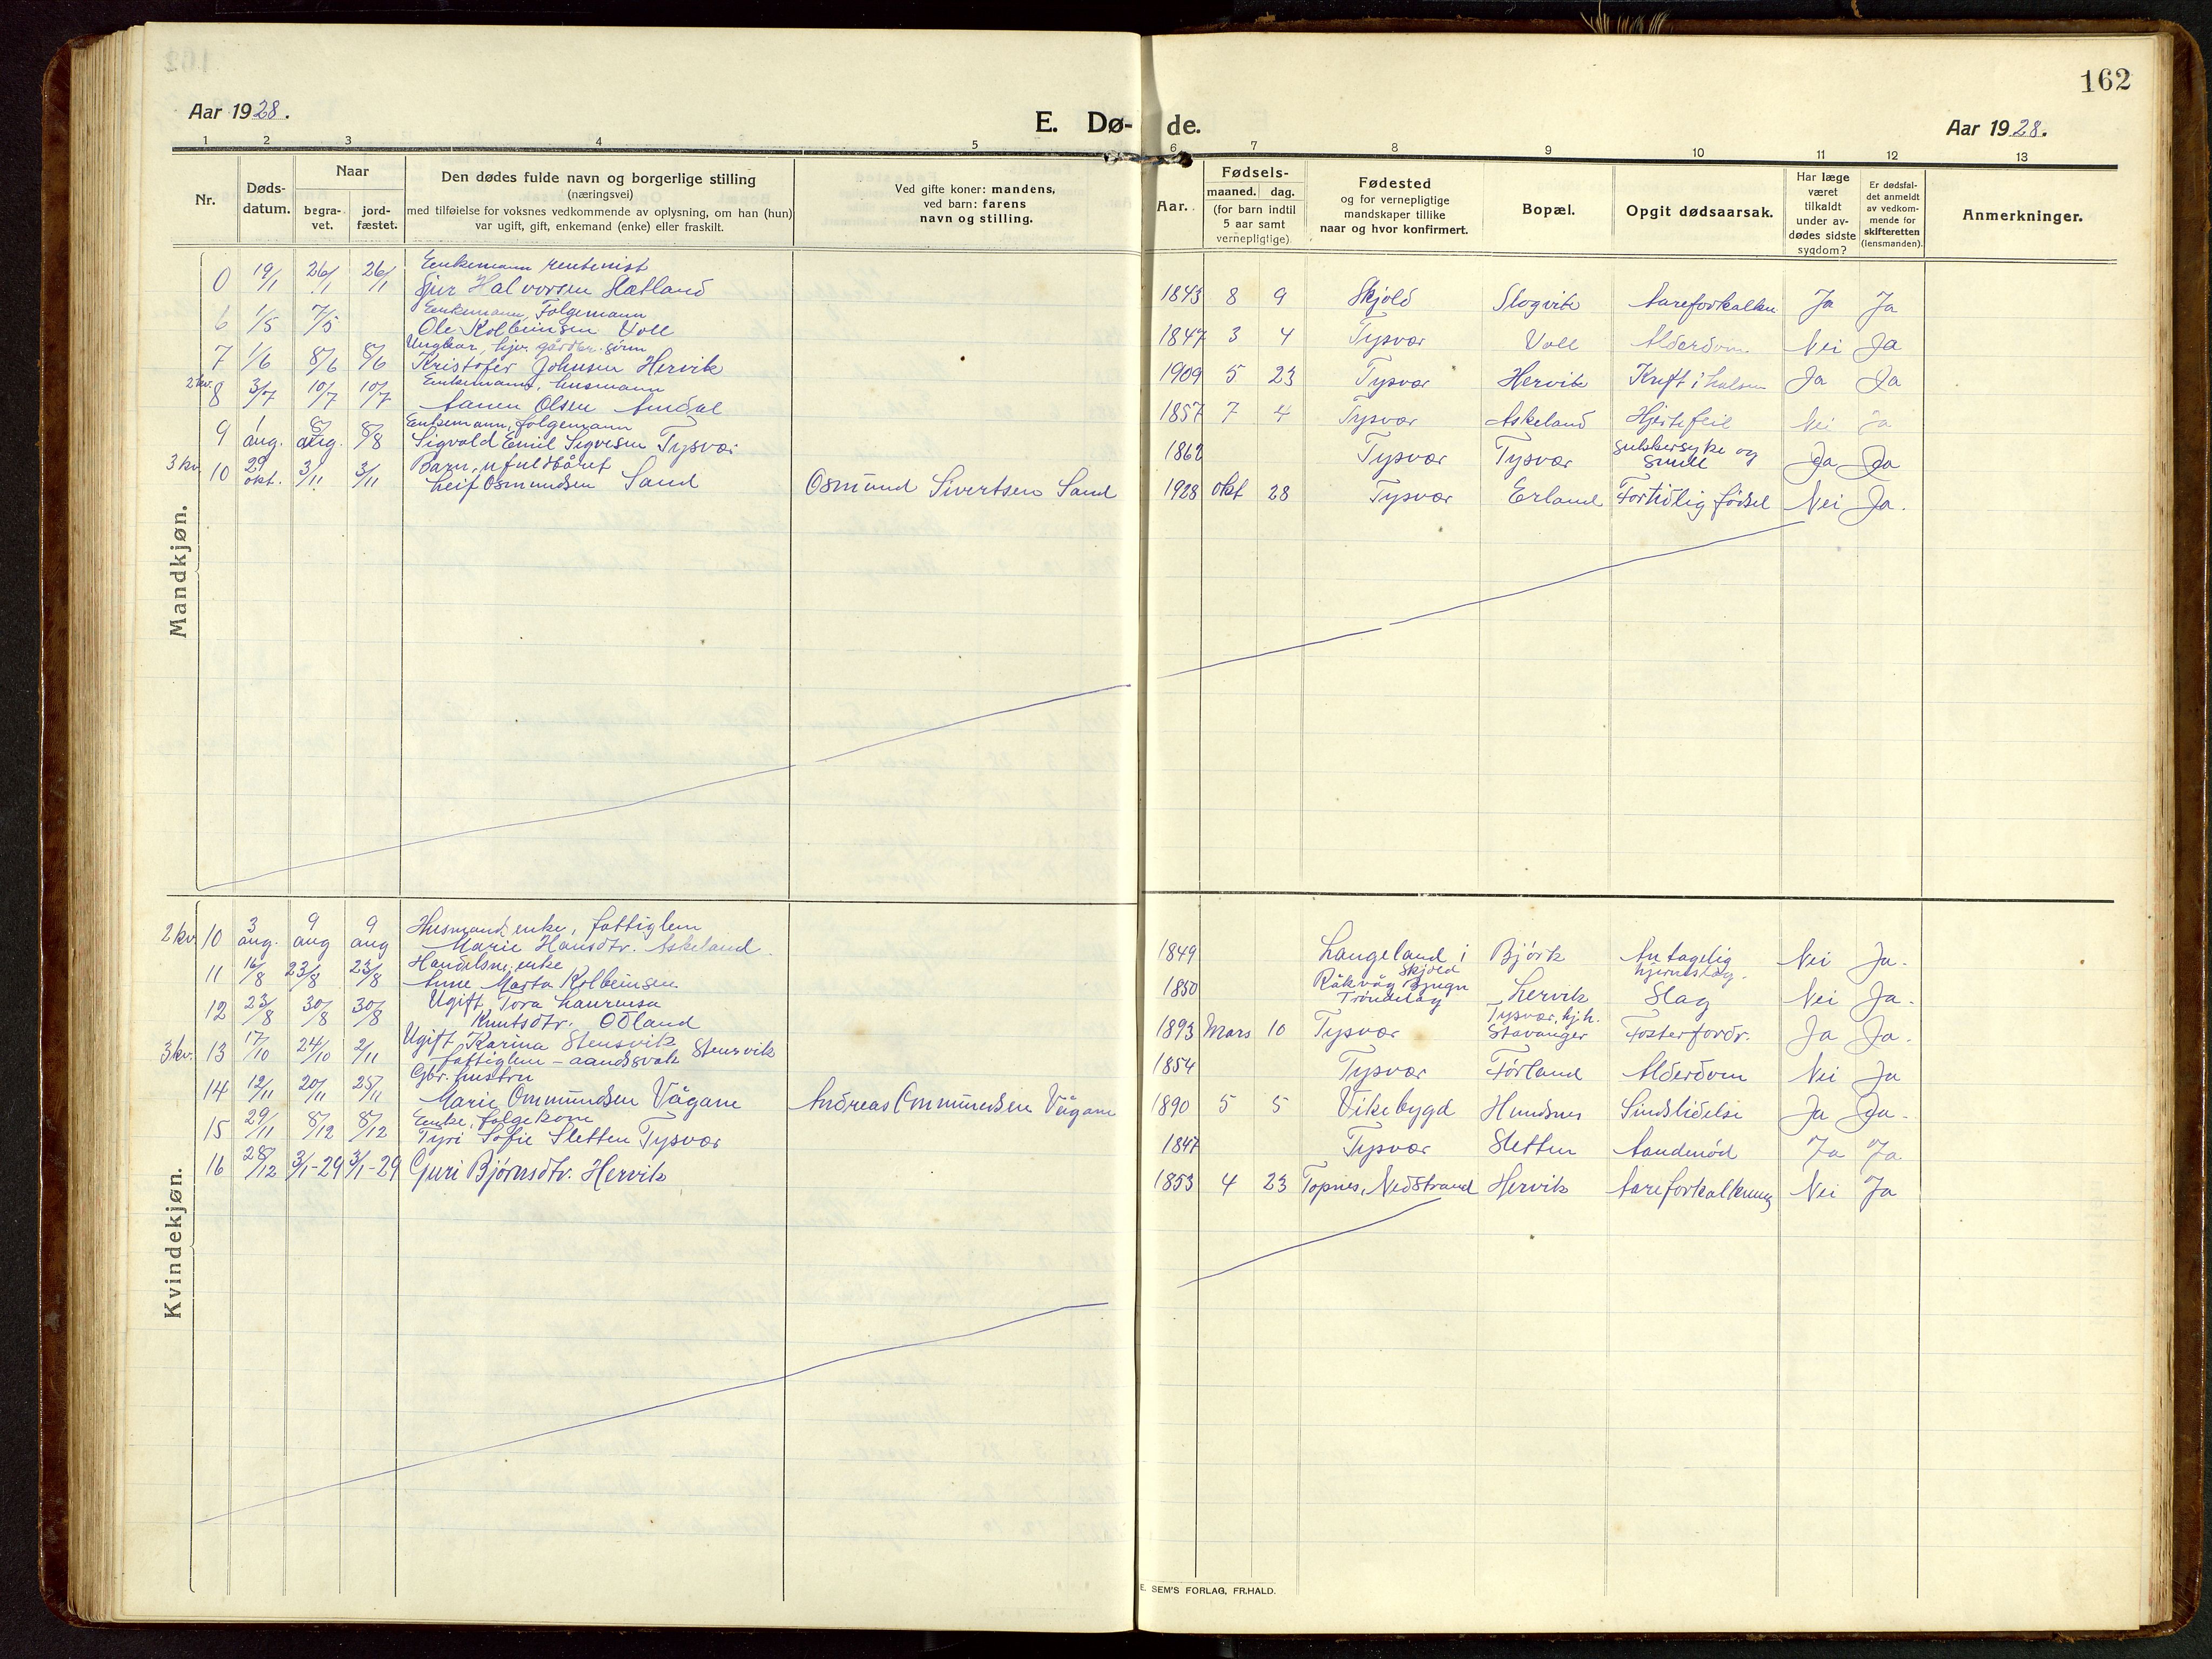 162
Aar 1928.
E. Dø- de.
Aar 1928.
1 2 3 4 5 6 7 8 9 10 11 12 13
Nr.
Døds-
datum.
Naar
begra-
vet.
jord-
fæstet.
Den dødes fulde navn og borgerlige stilling
(næringsvei)
med tilføielse for voksnes vedkommende av oplysning, om han (hun)
var ugift, gift, enkemand (enke) eller fraskilt.
Ved gifte koner: mandens,
ved barn: farens
navn og stilling.
Aar.
Fødsels-
maaned. dag.
(for barn indtil
5 aar samt
vernepligtige)
Fødested
og for vernepligtige
mandskaper tillike
naar og hvor konfirmert.
Bopæl.
Opgit dødsaarsak.
Har læge
været
tilkaldt
under av-
dødes sidste
sygdom?
Er dødsfal-
det anmeldt
av vedkom-
mende for
skifteretten
(lensmanden).
Anmerkninger.
Mandkjøn.
Enkemann rentenist
0 19/1 26/1 26/1 Sjur Halvorsen Hatland 1843 8 9 Skjold Slogvik Aareforkalkn Ja Ja
Enkemann, Folgemann
6 1/5 7/5 Ole Kolbeinsen Voll 1847 3 4 Tysvær Voll Alderdom Nei Ja
Ungkar, hjv. gårdbr. sønn
7 1/6 8/6 8/6 Kristofer Johnsen Hervik 1909 5 23 Tysvær Hervik Kreft i halsen Ja Ja
Enkemann, husmann
2 kv. 8 3/7 10/7 10/7 Aanen Olsen Amdal 1857 7 4 Tysvær Askeland Hjertefeil Nei Ja
Enkemann, folgemann
9 1 aug. 8 aug. 8/8 Sigvald Emil Sigvesen Tysvær 1862 Tysvær Tysvær Sukkersyke og Ja Ja
Barn, ufuldbåret
3 kv. 10 29 okt. 3/11 3/11 Leif Osmundsen Sand Osmund Sivertsen Sand 1928 Okt 28 Tysvær Erland Fortidlig fødsel Nei Ja.
Kvindekjøn.
Husmands enke, fattiglem
2 kv. 10 3 aug. 9 aug 9 aug Marie Hansdtr. Askeland. 1849 Langeland i Skjold Bjørk Antagelig hjerneslag. Nei Ja.
Handelsm. enke
11 16/8 23/8 23/8 Anne Marta Kolbeinsen 1850 Råkvåg Bjugn Trøndelag Hervik Slag Nei Ja.
Ugift, Tora Laurensa
12 23/8 30/8 30/8 Knutsdtr. Odland 1893 Mars 10 Tysvær Tysvær, hj.h. Stavanger Fosterfordr. Ja Ja.
Ugift Karina Stensvik
3 kv. 13 17/10 24/10 2/11 fattiglem - aandssvak Stensvik 1854 Tysvær Førland Alderdom Nei Ja
Gbr. hustru
14 12/11 20/11 25/11 Marie Ommundsen Vågane Andreas Ommundsen Vågane 1890 5 5 Vikebygd Hundsnes Sindslidelse Ja Ja.
Enke, folgekone
15 29/11 8/12 8/12 Tyri Sofie Sletten Tysvær 1847 Tysvær Sletten Aandenød Ja Ja
16 28/12 3/1-29 3/1-29 Guri Bjørnsdtr. Hervik 1853 4 23 Topnes, Nedstrand Hervik Aareforkalkning Nei Ja
E. SEM'S FORLAG, FR.HALD.